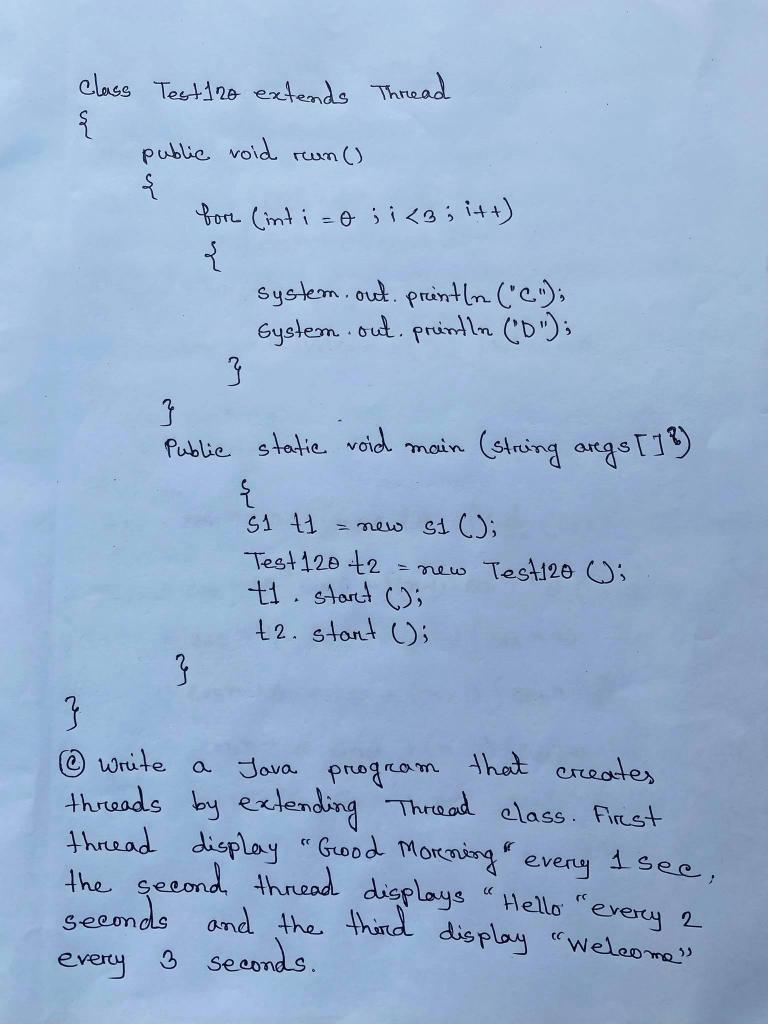 Class Test120 extends Thread
{
public void run()
{
for (int i = 0 ; i < 3 ; i++)
{
system.out.println ("C");
System.out.println ("D");
}
}
Public static void main (string args[])
{
s1 t1 = new s1 ();
Test120 t2 = new Test120 ();
t1. start ();
t2. start ();
}
}
© write a Java program that creates
threads by extending Thread class. First
thread display "Good Morning" every 1 sec,
the second thread displays "Hello" every 2
seconds and the third display "Welcome"
every 3 seconds.